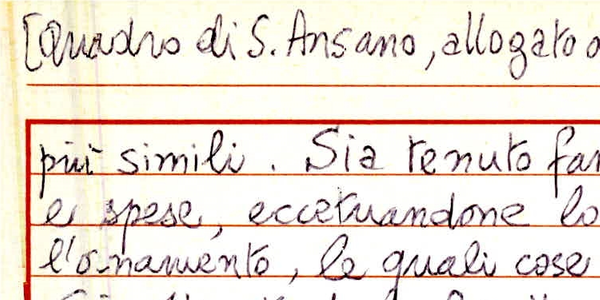 [Quadro di S. Ansano, allogato a
più simili. Sia tenuto far
e spese, eccetuandone lo
l'ornamento, le quali cose